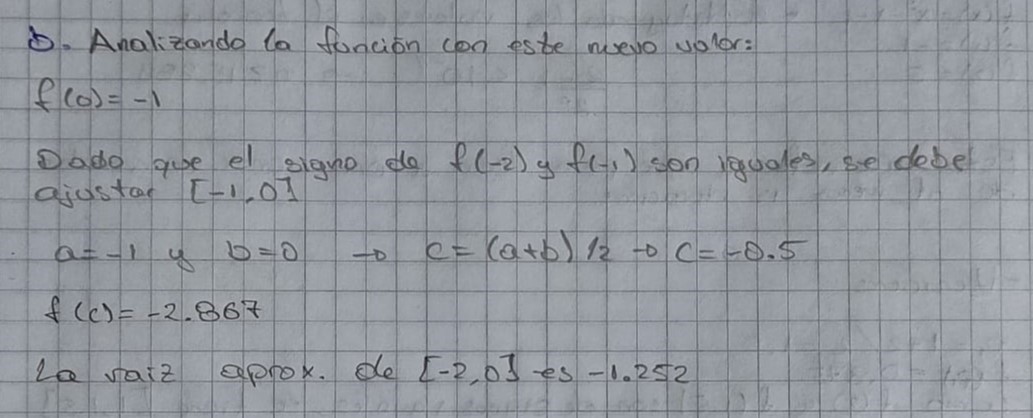 b. Analizando la función con este nuevo valor:
f(0) = -1
Dado que el signo de f(-2) y f(-1) son iguales, se debe
ajustar [-1,0]
a = -1 y b = 0 → c = (a+b) /2 → c = -0.5
f(c) = -2.867
La raiz aprox. de [-2,0] es -1.252